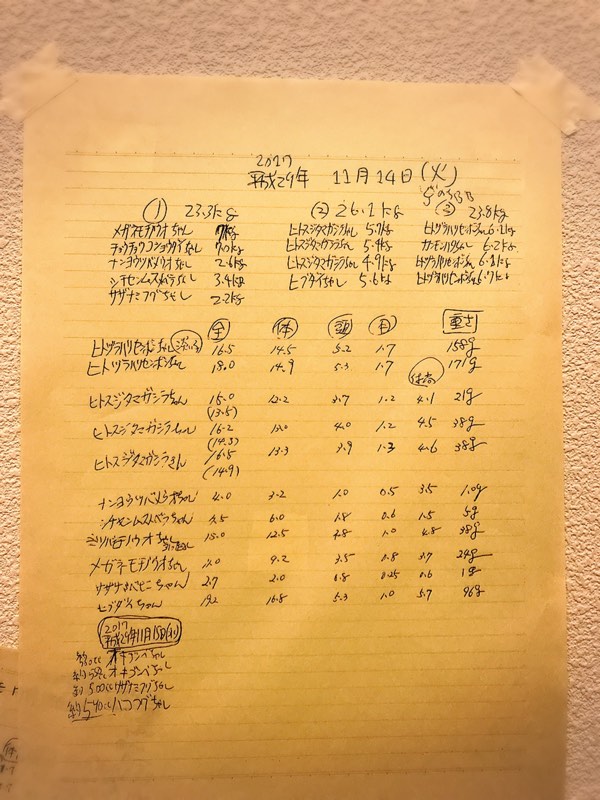 2017
平成29年 11月14日(火)
① 23.3kg
メガネモチノウオちゃん 7kg
チョウチョウコショウダイちゃん 7.0kg
ナンヨウツバメウオちゃん 2.6kg
シチセンムスメベラちゃん 3.4kg
サザナミフグちゃん 2.2kg
② 26.1kg
ヒトスジタマガシラちゃん 5.7kg
ヒトスジタマガシラちゃん 5.4kg
ヒトスジタマガシラちゃん 4.9kg
ヒブダイちゃん 5.6kg
③ 23.8kg
ヒトヅラハリセンボンちゃん 6.2kg
6.2kg
ヒトヅラハリセンボンちゃん
ヒトヅラハリセンボンちゃん
全 体 頭 目 重さ
ヒトヅラハリセンボンちゃん 16.5 14.5 5.2 1.7 158g
ヒトヅラハリセンボンちゃん 18.0 14.9 5.3 1.7 171g
体高
ヒトスジタマガシラちゃん 15.0 12.2 3.7 1.2 4.1 21g
(13.5)
ヒトスジタマガシラちゃん 16.2 13.0 4.0 1.2 4.5 38g
(14.3)
ヒトスジタマガシラちゃん 16.5 13.3 3.9 1.3 4.6 38g
(14.9)
ナンヨウツバメウオちゃん 4.0 3.2 1.0 0.5 3.5 1.0g
シチセンムスメベラちゃん 7.5 6.0 1.8 0.6 1.5 5g
ミツバモチノウオちゃん 15.0 12.5 4.8 1.0 4.8 38g
メガネモチノウオちゃん 9.2 3.5 0.8 3.7 24g
ちゃん 2.7 2.0 0.8 0.25 0.6 1g
ヒブダイちゃん 19.2 16.8 5.3 1.0 5.7 96g
2017
平成29年11月15日(水)
オキゴンベちゃん
オキゴンベちゃん
約500ccサザナミフグちゃん
約540ccハコフグちゃん